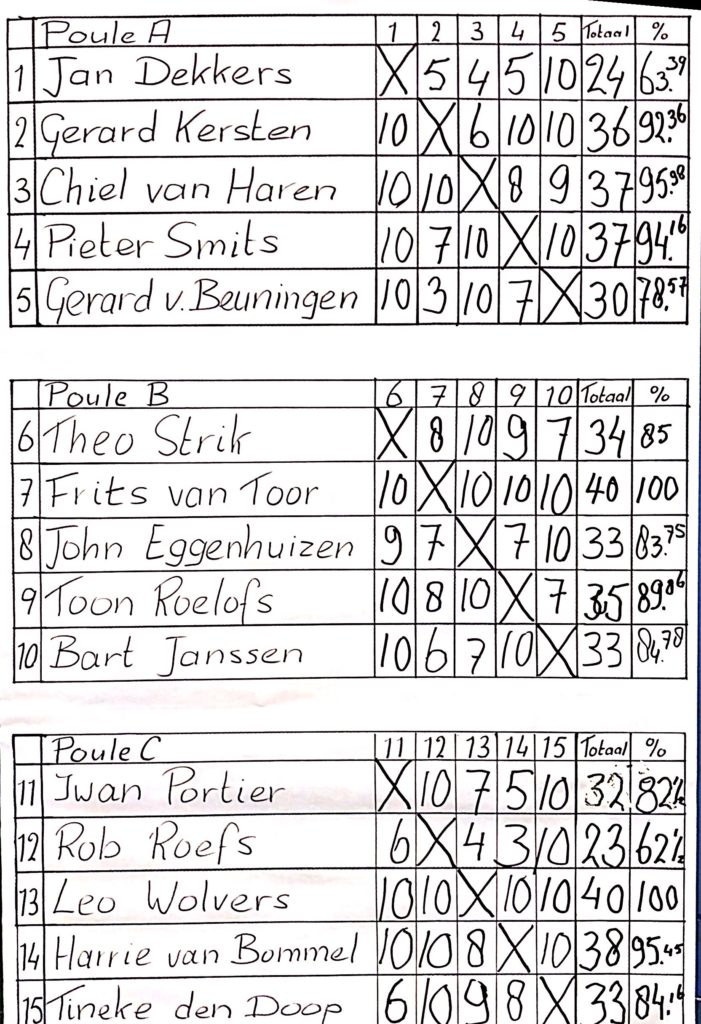 Poule A 1 2 3 4 5 Totaal %
1 Jan Dekkers X 5 4 5 10 24 63.39
2 Gerard Kersten 10 X 6 10 10 36 92.36
3 Chiel van Haren 10 10 X 8 9 37 95.98
4 Pieter Smits 10 7 10 X 10 37 94.16
5 Gerard v. Beuningen 10 3 10 7 X 30 78.57
Poule B 6 7 8 9 10 Totaal %
6 Theo Strik X 8 10 9 7 34 85
7 Frits van Toor 10 X 10 10 10 40 100
8 John Eggenhuizen 9 7 X 7 10 33 83.75
9 Toon Roelofs 10 8 10 X 7 35 89.86
10 Bart Janssen 10 6 7 10 X 33 84.78
Poule C 11 12 13 14 15 Totaal %
11 Iwan Portier X 10 7 5 10 32 82½
12 Rob Roefs 6 X 4 3 10 23 62½
13 Leo Wolvers 10 10 X 10 10 40 100
14 Harrie van Bommel 10 10 8 X 10 38 95.45
15 Tineke den Doop 6 10 9 8 X 33 84.16